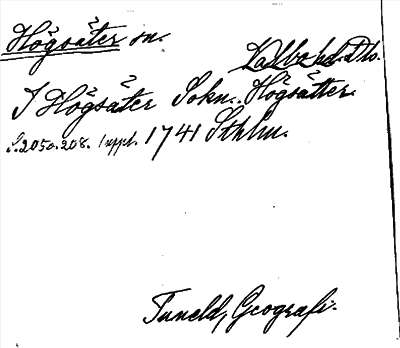 Högsäter sn.
Valbo hd. Dls.
I Högsäter Sokn. Högsätter.
S. 205 o. 208. 1 uppl. 1741 Sthlm.
Tuneld, Geografi.